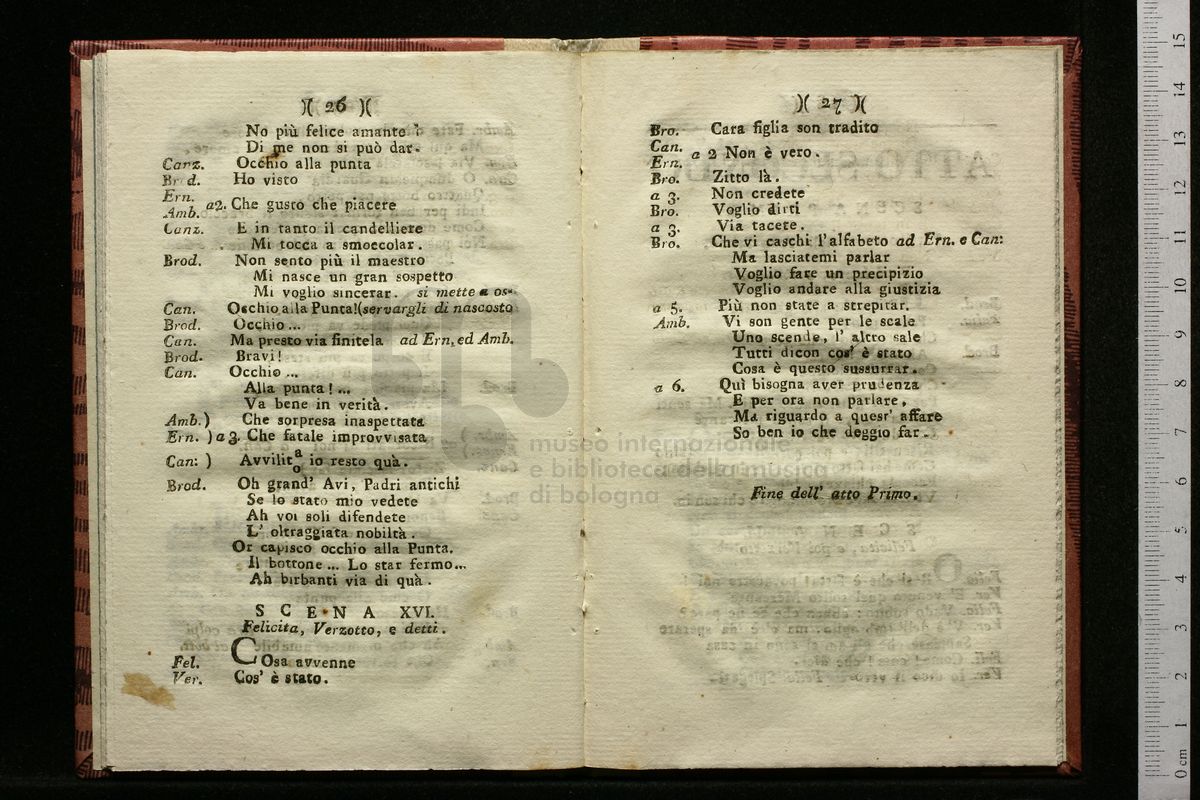 )( 26 )(
No più felice amante
Di me non si può dar.
Canz. Occhio alla punta
Brod. Ho visto
Ern.
Amb. a2. Che gusto che piacere
Canz. E in tanto il candelliere
Mi tocca a smoccolar.
Brod. Non sento più il maestro
Mi nasce un gran sospetto
Mi voglio sincerar. si mette a os-
Can. Occhio alla Punta!(servargli di nascosto
Brod. Occhio ...
Can. Ma presto via finitela ad Ern, ed Amb.
Brod. Bravi!
Can. Occhio ...
Alla punta! ...
Va bene in verità.
Amb. ) Che sorpresa inaspettata
Ern. ) a 3. Che fatale improvvisata
Can: ) Avvilit a o io resto quà.
Brod. Oh grand' Avi, Padri antichi
Se lo stato mio vedete
Ah voi soli difendete
L' oltraggiata nobiltà.
Or capisco occhio alla Punta.
Il bottone ... Lo star fermo...
Ah birbanti via di quà.
SCENA XVI.
Felicita, Verzotto, e detti.
Fel. COsa avvenne
Ver. Cos' è stato.
)( 27 )(
Bro. Cara figlia son tradito
Can.
Ern. a 2 Non è vero.
Bro. Zitto là.
a 3. Non credete
Bro. Voglio dirti
a 3. Via tacete.
Bro. Che vi caschi l'alfabeto ad Ern. e Can:
Ma lasciatemi parlar
Voglio fare un precipizio
Voglio andare alla giustizia
a 5. Più non state a strepitar.
Amb. Vi son gente per le scale
Uno scende, l' altro sale
Tutti dicon cos' è stato
Cosa è questo sussurrar.
a 6. Quì bisogna aver prudenza
E per ora non parlare,
Ma riguardo a quest' affare
So ben io che deggio far.
Fine dell' atto Primo.
museo internazionale
e biblioteca della musica
di bologna
0 cm 1 2 3 4 5 6 7 8 9 10 11 12 13 14 15